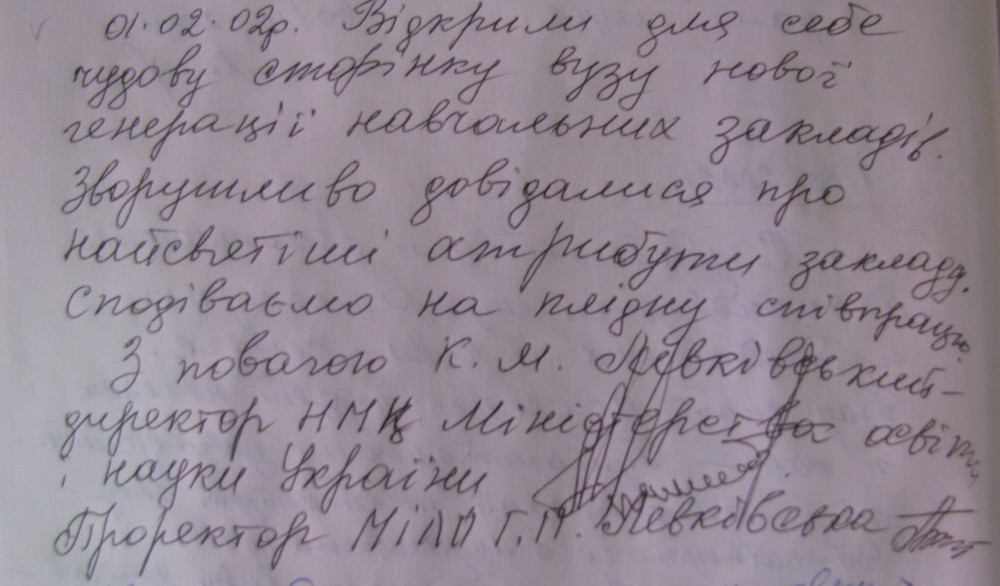 01.02.02р. Відкрили для себе
чудову сторінку вузу нової
генерації навчальних закладів.
Зворушливо довідалися про
найсвятіші атрибути закладу.
Сподіваємо на плідну співпрацю.
З повагою К. М. Левківський-
директор НМЦ Міністерства освіти
і науки України
Проректор МІЛП Г.П. Левківська